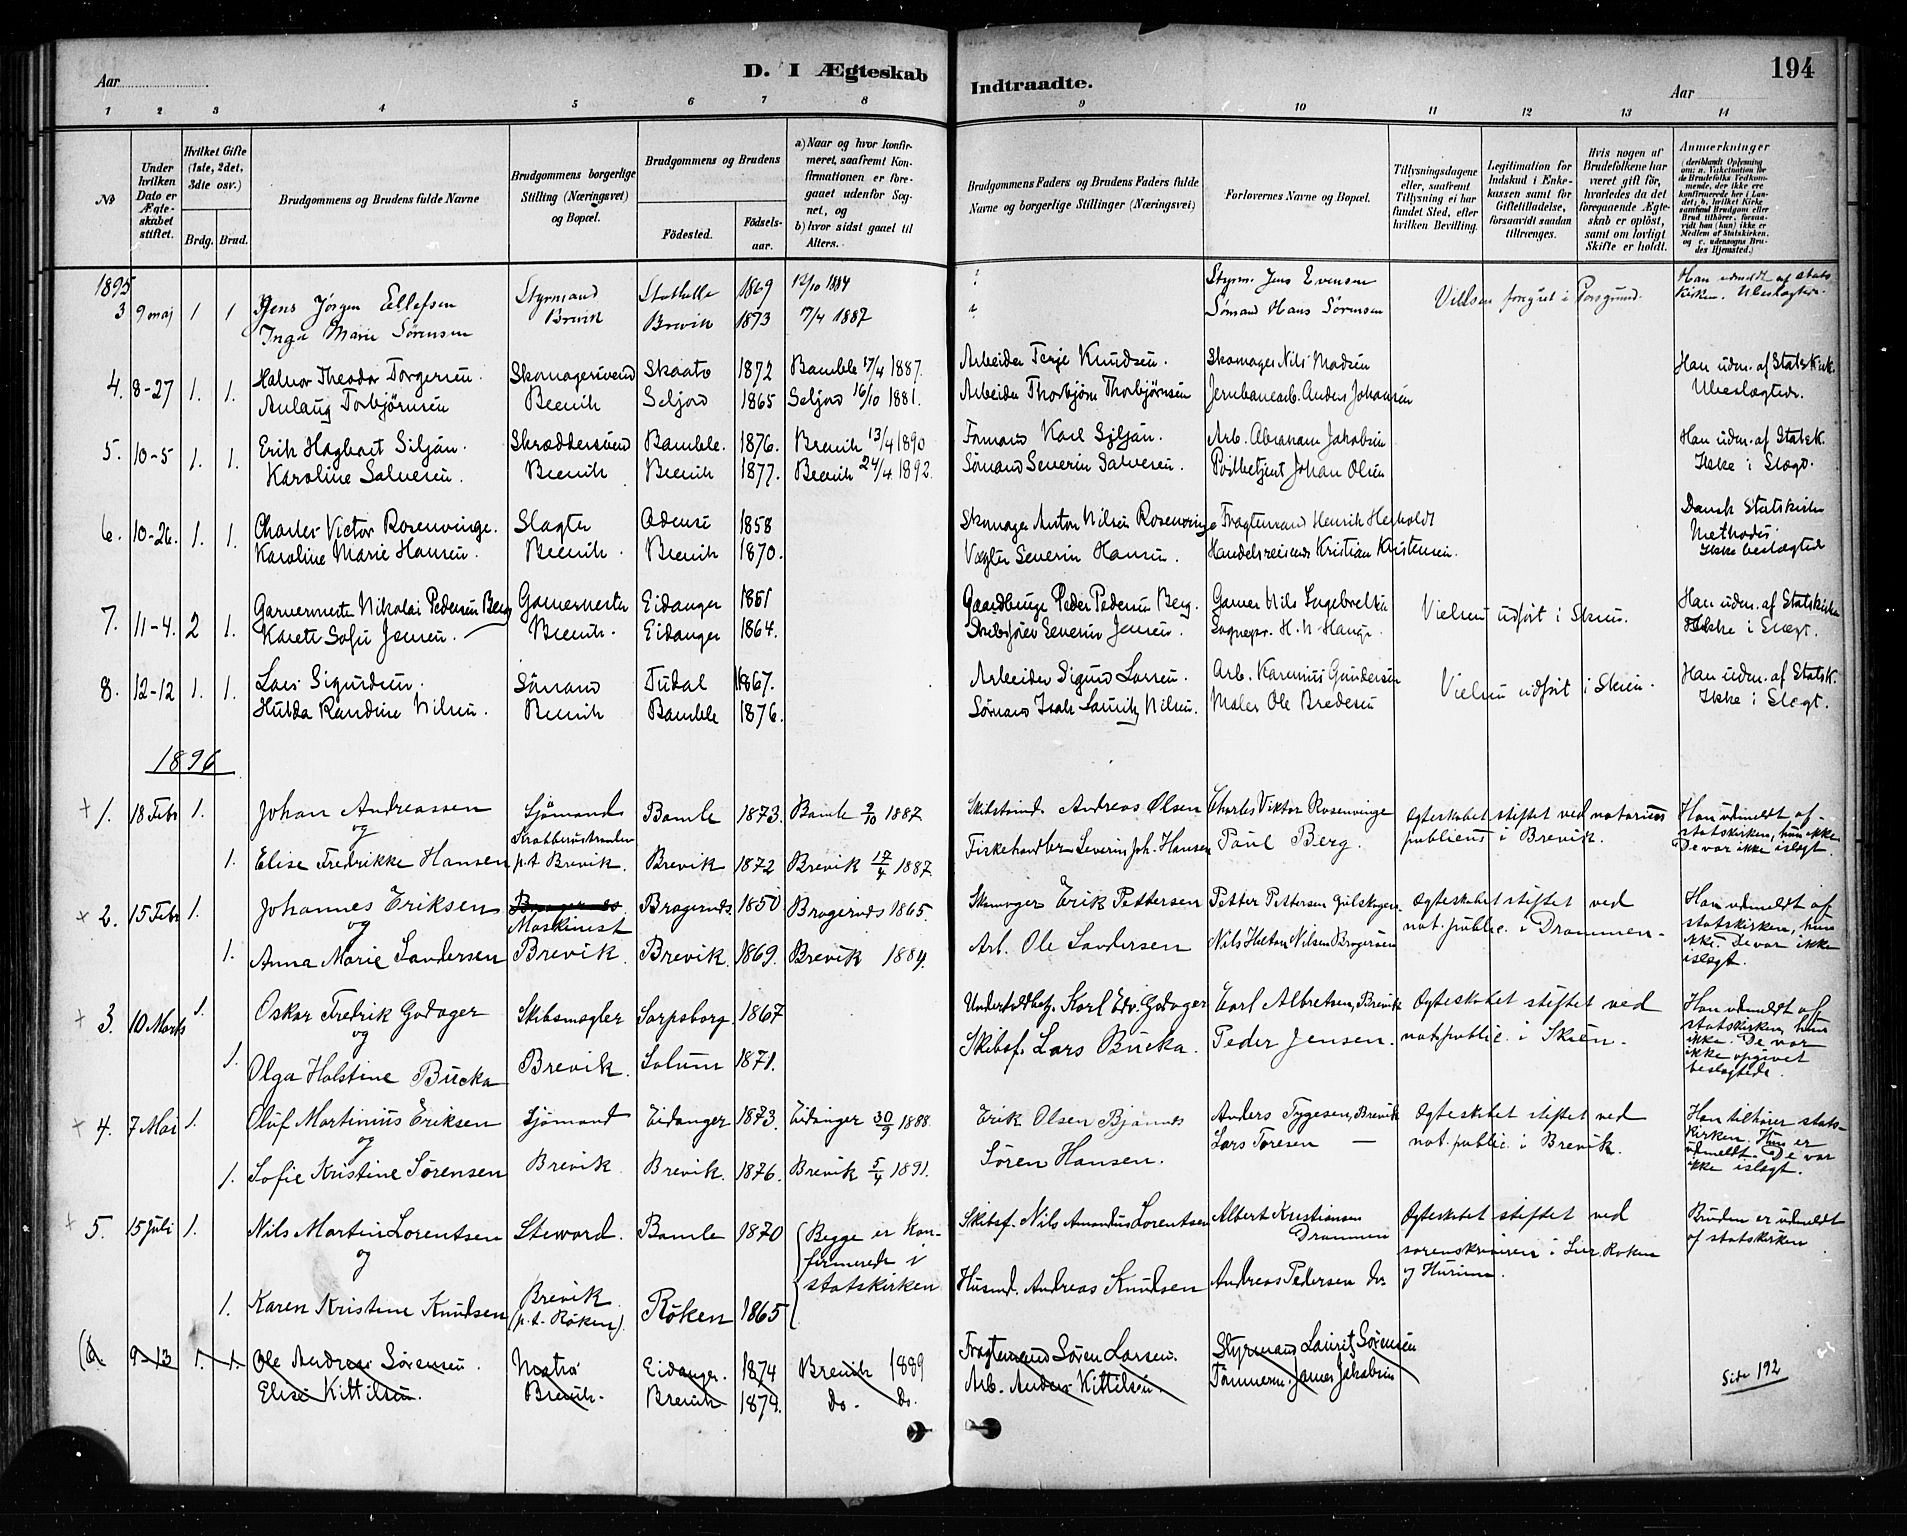 Aar
D. I Ægteskab
Indtraadte.
Aar
194
1 2 3 4 5 6 7 8 9 10 11 12 13 14
No
Under hvilken Dato er Ægteskabet stiftet.
Hvilket Gifte (1ste, 2det, 3die osv.)
Brdg. Brud.
Brudgommens og Brudens fulde Navne
Brudgommens borgerlige Stilling (Næringsvei) og Bopæl.
Brudgommens og Brudens
Fødested.
Fødselsaar.
a) Naar og hvor konfirmeret, saafremt Konfirmationen er foregaaet udenfor Sognet, og
b) hvor sidst gaaet til Alters.
Brudgommens Faders og Brudens Faders fulde Navne og borgerlige Stillinger (Næringsvei)
Forlovernes Navne og Bopæl.
Tillysningsdagene eller, saafremt Tillysning ei har fundet Sted, efter hvilken Bevilling.
Legitimation for Indskud i Enkekassen samt for Giftetilladelse, forsaavidt saadan tiltrænges.
Hvis nogen af Brudefolkene har været gift før, hvorledes da det foregaaende Ægteskab er opløst, samt om lovligt Skifte er holdt.
Anmærkninger
(deriblandt Oplysning om: a. Vakcination for de Brudefolks Vedkommende, der ikke ere konfirmerede her i Landet; b. hvilket Kirkesamfund Brudgom eller Brud tilhører, forsaavidt han (hun) ikke er Medlem af Statskirken, og c. udensogns Brudes Hjemsted.)
1895
3 9 maj 1 1 Jens Jørgen Ellefsen Styrmand Stathelle 1869 12/10 1884 ? Styrm. Jens Evensen Vielsen foregået i Porsgrund. Han udmeldt af Statskirken. Ubeslægtede.
Inga Marie Sørensen Brevik Brevik 1873 17/4 1887 ? Sømand Hans Sørensen
4. 8-27 1. 1. Halvor Theodor Torgersen. Skomagersvend Skaatø 1872 Bamble 17/4 1887. Arbeider Terje Knudsen. Skomager Nils Madsen Han udm. af Statskirk.
Aulaug Torbjørnsen Brevik Seljord 1865 Seljord 16/10 1881. Arbeider Thorbjørn Thorbjørnsen Jernbanearb. Anders Johansen Ubeslægtede.
5. 10-5 1. 1. Erik Hagbart Siljan. Skræddersvend Bamble. 1876. Brevik 13/4 1890 Formand Karl Siljan. Arb. Abraham Jakobsen Han udm. af Statsk.
Karoline Salvesen. Brevik Brevik 1877. Brevik 24/4 1892. Sømand Severin Salvesen. Postbetjent Johan Olsen Ikke i Slægt.
6. 10-26. 1. 1. Charles Victor Rosenvinge. Slagter Odense 1858 Skomager Anton Nilsen Rosenvinge Fragtemand Henrik Herholdt Dansk Statskirke
Karoline Marie Hansen. Brevik. Brevik 1870. Vægter Severin Hansen. Handelsreisende Kristian Kristensen. Methodist. Ikke beslægtede
7. 11-4. 2 1. Garvermester Nikolai Pedersen Berg Garvermester Eidanger 1851 Gaardbruger Peder Pedersen Berg. Garver Nils Ingebretsen Vielsen udført i Skien. Han udm. af Statskirke
Karete Sofie Jensen. Brevik. Eidanger 1864. Skibsfører Severin Jensen. Sognepr. H. N. Hauge. Ikke i Slægt.
8. 12-12 1. 1. Lars Sigurdsen. Sømand Tudal 1867. Arbeider Sigurd Larsen. Arb. Karenius Gundersen Vielsen udført i Skien. Han udm. af Statsk.
Hulda Randine Nilsen. Brevik Bamble 1876. Sømand Isak Lauritz Nilsen. Maler Ole Bredesen Ikke i Slægt.
1896
+ 1. 18 Febr 1. Johan Andreassen Sjömand Bamle 1873. Bamle 9/10 1887 Andreas Ølsen Charles Viktor Rosenvinge Ogteskabet stiftet ved notarius Han udmeldt af
og publicus i Brevik. statskirken, hun ikke
1. Elise Fredrikke Hansen p.t. Brevik. Brevik 1872 Brevik 17/4 1887. Fiskehandler Severin Joh. Hansen Paul Berg. De var ikke islægt.
+ 2. 15 Febr 1. Johannes Eriksen Maskinist Bragernds 1850 Bragernds 1865. Skomager Erik Pettersen Petter Pettersen Gulskogen. Ogteskabet stiftet ved Han udmeldt af
og not. public. i Drammen. statskirken, hun
1. Anna Marie Sandersen Brevik. Brevik. 1869. Brevik 1884. Arb. Ole Sandersen Nils Helton Nilsen Bragernes ikke. De var ikke islægt.
+ 3. 10 Marts 1. Oskar Fredrik Godager Skibsmægler Sarpsborg. 1867 Undertoldbetj. Karl Edv. Godager Carl Albretsen, Brevik Ogteskabet stiftet ved Han udmeldt af
og not. public. i Skien. statskirken, hun ikke. De var
1. Olga Holstine Bucka Brevik. Solum 1871. Skibsf. Lars Bucka. Peder Jensen. ikke opgivet beslægtede.
+ 4. 7 Mai 1. Oluf Martinius Eriksen Sjömand Eidanger 1873. Eidanger 30/9 1888. Erik Olsen Bjønnes Anders Tygesen, Brevik Ogteskabet stiftet ved Han tilhører stats-
og not. public. i Brevik. kirken. Hun er
1. Sofie Kristine Sörensen Brevik. Brevik. 1876. Brevik 5/4 1891. Sören Hansen. Lars Toresen — udmeldt. De var ikke islægt.
+ 5. 15 Juli 1. Nils Martin Lorentsen Steward. Bamle 1870 Begge er kon- Skibsf. Nils Amandus Lorentsen Albert Kristiansen Drammen Ogteskabet stiftet ved Bruden er udmeldt
og firmerede i sorenskriveren i Lier, Röken af statskirken
1. Karen Kristine Knudsen Brevik (p.t. Röken). Röken 1865 statskirken Husmd. Andreas Knudsen Andreas Pedersen do og Hurum.
(6 9-13 1. 1. Ole Andreas Sörensen. Matros Eidanger. 1874 Brevik 1889 Fragtemand Sören Larsen. Styrmand Laurits Sörensen
Elise Kittilsen. Brevik. Brevik 1874. Do. Do. Arb. Anders Kittilsen. Tømmerm. James Jakobsen Side 192